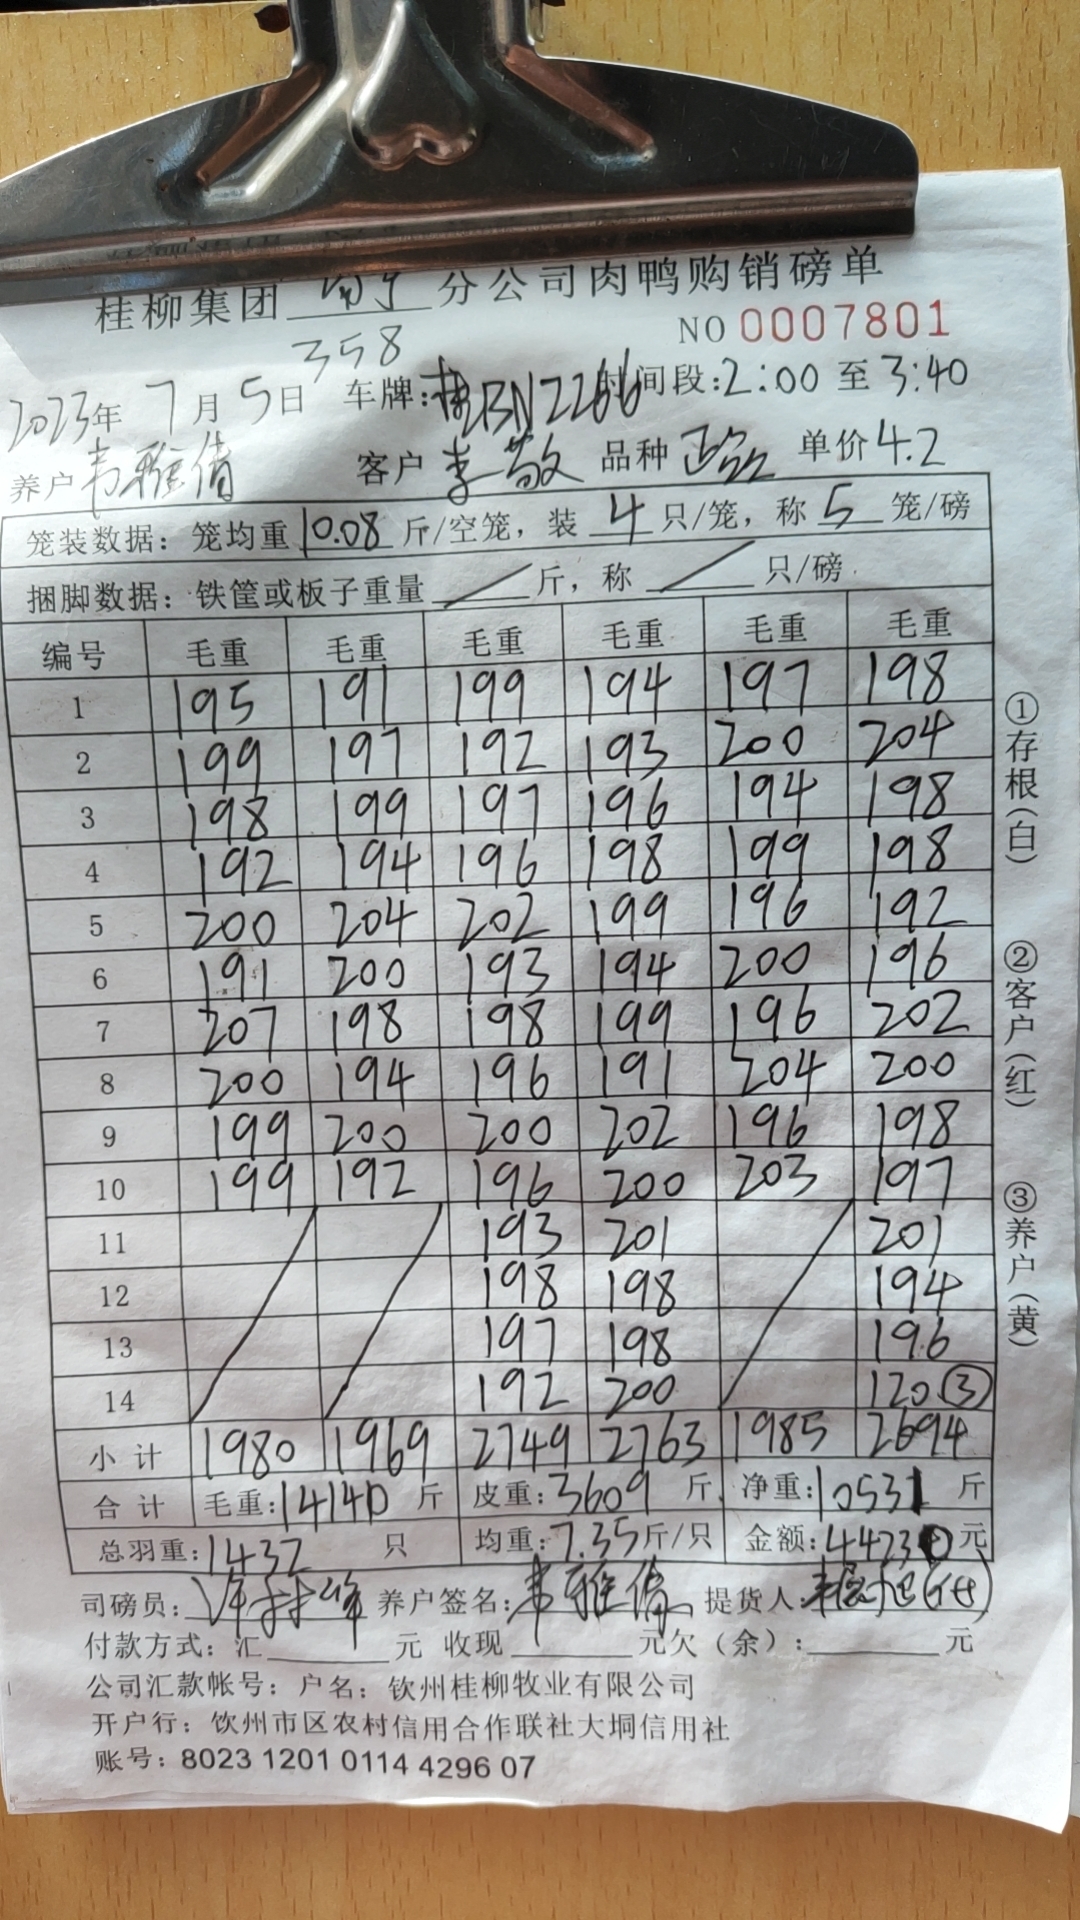 桂柳集团 南宁 分公司肉鸭购销磅单
NO 0007801
358
2023年 7月 5日 车牌: 桂BN2266 时间段: 2:00 至 3:40
养户 韦雅倩 客户 李敬 品种 单价 4.2
笼装数据: 笼均重 10.08 斤/空笼, 装 4 只/笼, 称 5 笼/磅
捆脚数据: 铁筐或板子重量 / 斤, 称 / 只/磅
编号 毛重 毛重 毛重 毛重 毛重 毛重
1 195 191 199 194 197 198
2 199 197 192 193 200 204
3 198 199 197 196 194 198
4 192 194 196 198 199 198
5 200 204 202 199 196 192
6 191 200 193 194 200 196
7 207 198 198 199 196 202
8 200 194 196 191 204 200
9 199 200 200 202 196 198
10 199 192 196 200 203 197
11 193 201 201
12 198 198 194
13 197 198 196
14 192 200 120 ③
小计 1980 1969 2749 2763 1985 2694
合计 毛重: 14140 斤 皮重: 3609 斤 净重: 10531 斤
总羽重: 1432 只 均重: 7.35 斤/只 金额: 44230 元
司磅员: 养户签名: 韦雅倩 提货人:
付款方式: 汇 元 收现 元欠(余): 元
公司汇款帐号: 户名: 钦州桂柳牧业有限公司
开户行: 钦州市区农村信用合作联社大垌信用社
账号: 8023 1201 0114 4296 07
①存根(白)
②客户(红)
③养户(黄)